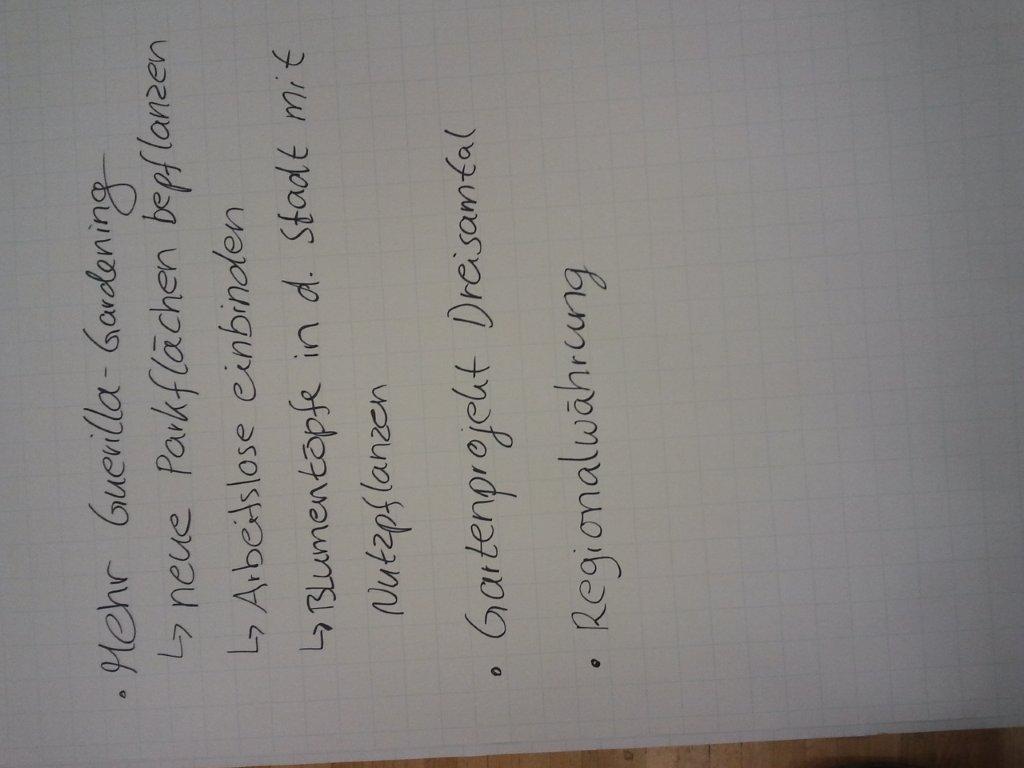 · Mehr Guerilla-Gardening
↳ neue Parkflächen bepflanzen
↳ Arbeitslose einbinden
↳ Blumentöpfe in d. Stadt mit
Nutzpflanzen
• Gartenprojekt Dreisamtal
• Regionalwährung